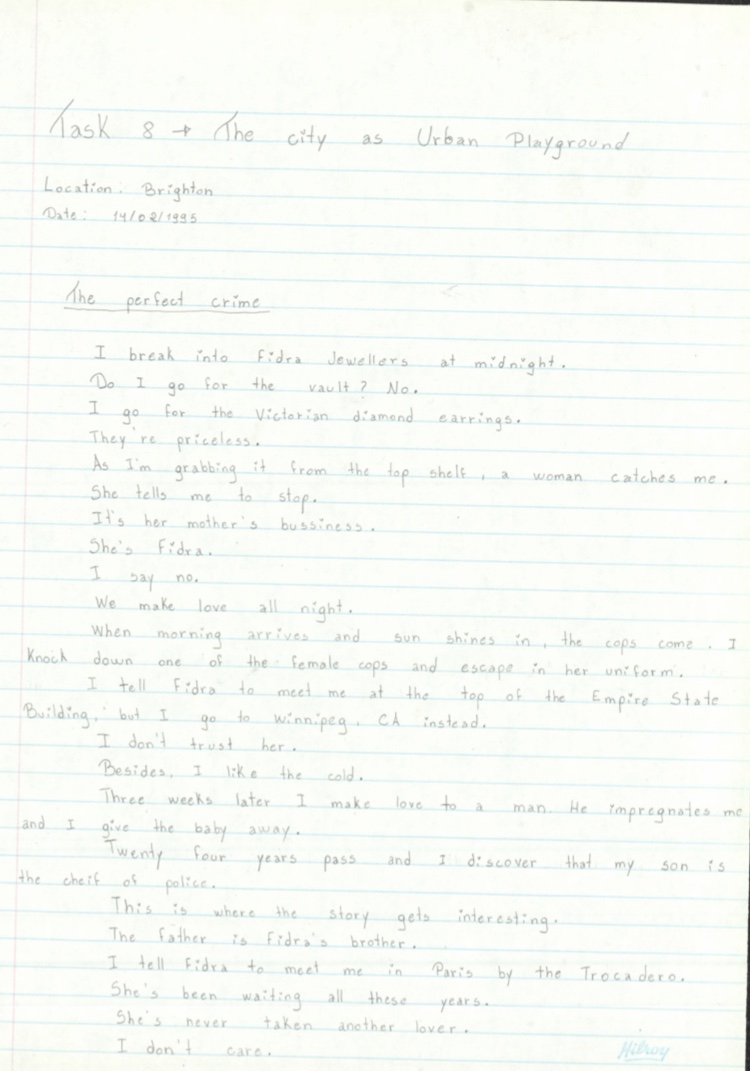 Task 8 → The city as Urban Playground
Location: Brighton
Date: 14/02/1995
The perfect crime
I break into Fidra Jewellers at midnight.
Do I go for the vault? No.
I go for the Victorian diamond earrings.
They're priceless.
As I'm grabbing it from the top shelf, a woman catches me.
She tells me to stop.
It's her mother's bussiness.
She's Fidra.
I say no.
We make love all night.
When morning arrives and sun shines in, the cops come. I
Knock down one of the female cops and escape in her uniform.
I tell Fidra to meet me at the top of the Empire State
Building, but I go to Winnipeg, CA instead.
I don't trust her.
Besides, I like the cold.
Three weeks later I make love to a man. He impregnates me
and I give the baby away.
Twenty four years pass and I discover that my son is
the cheif of police.
This is where the story gets interesting.
The father is Fidra's brother.
I tell Fidra to meet me in Paris by the Trocadero.
She's been waiting all these years.
She's never taken another lover.
I don't care.
Hilroy